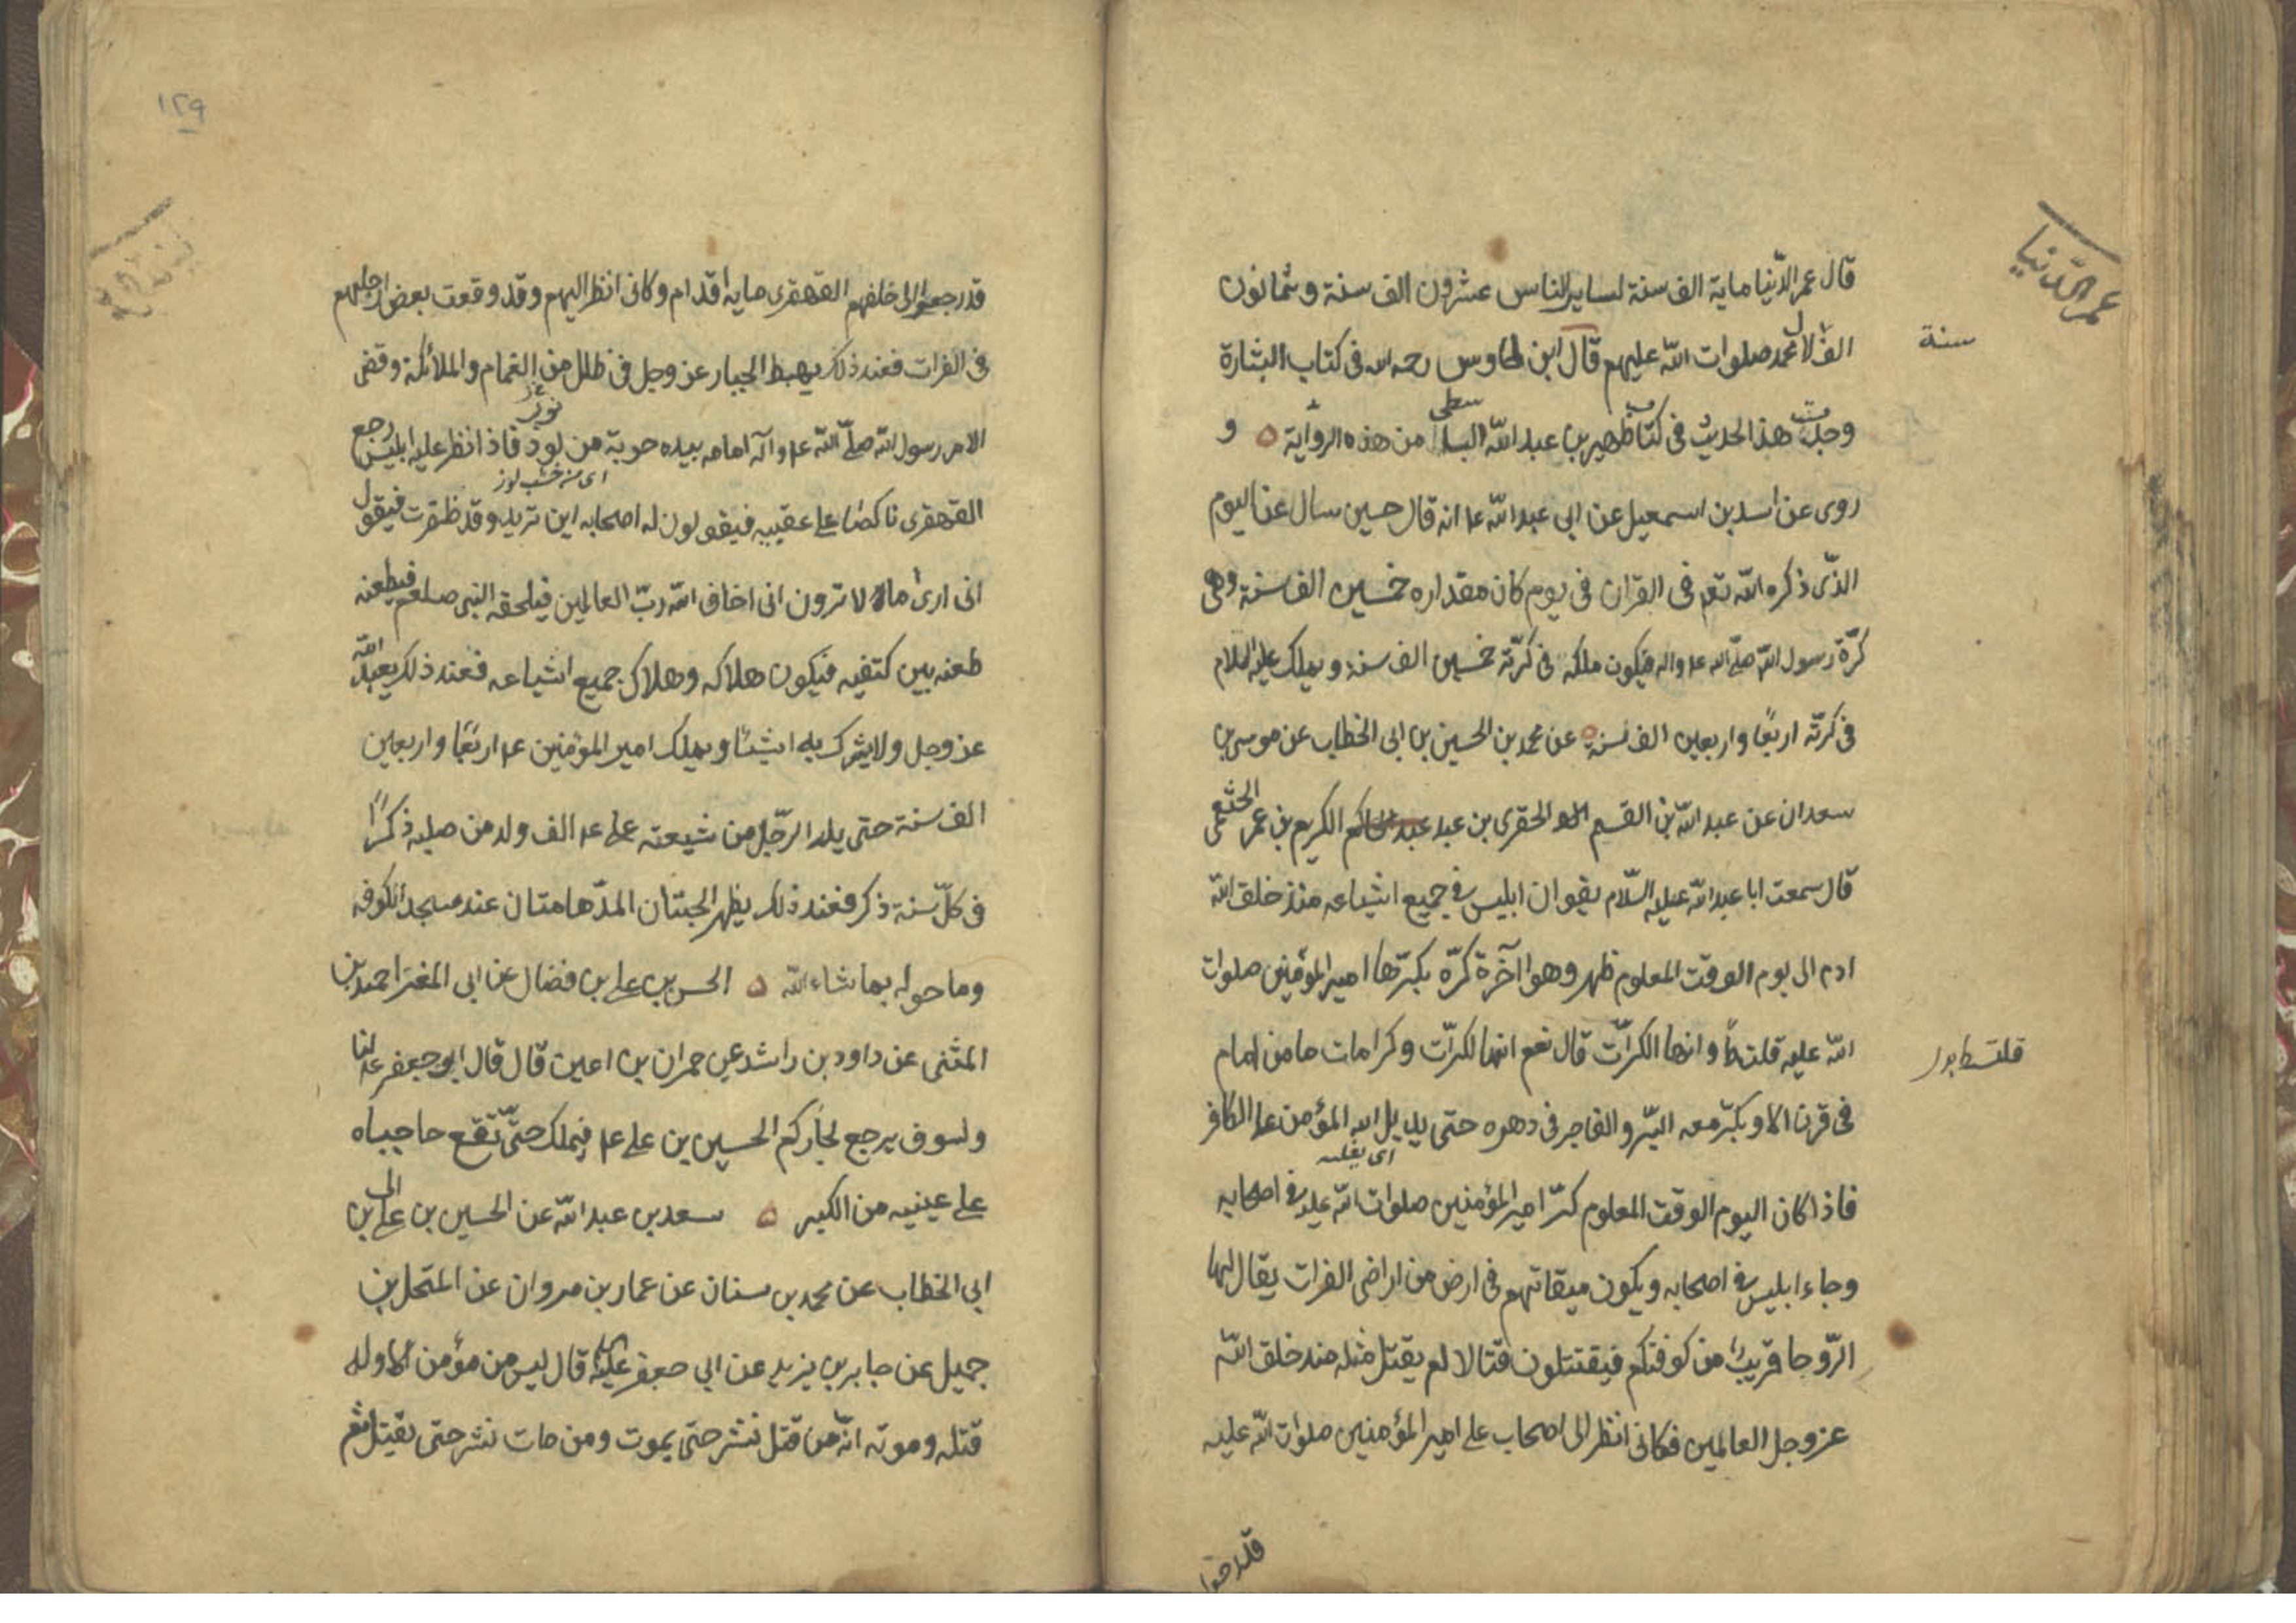 عمر الدّنيا
قال عمر الدّنيا ماية الف سنة لساير الناس عشرون الف سنة وثمانون
سنة
الف لال محمد صلوات الله عليهم قال ابن طاوس رحمه الله فى كتاب البشارة
وجدت هذا الحديث فى كتاب ظهير بن عبد الله ابسط من هذه الرواية ه و
روى عن اسد بن اسمعيل عن ابي عبد الله ع انه قال حسين سال عن اليوم
الذى ذكره الله تعم فى القران فى يوم كان مقداره خمسين الف سنة وهى
كرّة رسول الله صلّى الله ع واله فيكون ملكه فى كرّته خمسين الف سنة ويملك عليه السلام
فى كرّته اربعًا واربعين الف سنة ه عن محمد بن الحسين بن ابى الخطاب عن موسى بن
سعدان عن عبد الله بن القسم الحقرى بن عبد الكريم بن عمر الخثعمى
قال سمعت ابا عبد الله عليه السّلام يقو ان ابليس فى جميع اشياعه منذ خلق الله
ادم الى يوم الوقت المعلوم ظهر وهو اآخرة كرّه بكرّها امير المؤمنين صلوات
الله عليه قلت وانها الكرّات قال نعم انها لكرّات وكرامات ما من امام
فى قرن الا ويكرّ معه البرّ والفاجر فى دهره حتى يديل الله المؤمن على الكافر
اى يغلبه
فاذا كان اليوم الوقت المعلوم كرّ امير المؤمنين صلوات الله عليه فى اصحابه
وجاء ابليس فى اصحابه ويكون ميقاتهم فى ارض من اراضى الفرات يقال لها
الرّوحا قريب من كوفتكم فيقتتلون قتالا لم يقتل مثله منذ خلق الله
عز وجل العالمين فكانى انظر الى اصحاب على امير المؤمنين صلوات الله عليه
قد رجعوا
١٢٩
قد رجعوا الى خلفهم القهقرى ماية اقدام وكانى انظر اليهم وقد وقعت بعض ارجلهم
فى الفرات فعند ذلك يهبط الجبار عز وجل فى ظلل من الغمام والملائكة وقضى
نور
الامر رسول الله صلّى الله ع وآله امامه بيده حربة من لود فاذا نظر عليه ابليس رجع
اى من خشب لوز
القهقرى ناكصا على عقبيه فيقولون له اصحابه اين تريد وقد ظفرت فيقول
انى ارى ما لا ترون انى اخاف الله ربّ العالمين فيلحقه النبى صلعم فيطعنه
طعنه بين كتفيه فيكون هلاكه وهلاك جميع اشياعه فعند ذلك يعبد الله
عز وجل ولا يشرك به شيئا ويملك امير المؤمنين ع اربعًا واربعين
الف سنة حتى يلد الرّجل من شيعته على ع الف ولد من صلبه ذكرًا
فى كلّ سنة ذكر فعند ذلك يظهر الجنتان المدّهامتان عند مسجد الكوفه
وما حوله بما شاء الله ه الحسن بن على بن فضال عن ابى المغرا احمد بن
المثنى عن داود بن راشد عن حمران بن اعين قال قال ابو جعفر ع لنا
ولسوف يرجع لجاركم الحسين بن على ع فيملك حتّى تقع حاجباه
على عينيه من الكبر ه سعد بن عبد الله عن الحسين بن على بن
ابي الخطاب عن محمد بن سنان عن عمار بن مروان عن المنخل بن
جميل عن جابر بن يزيد عن ابي جعفر عليه قال ليس من مؤمن الا وله
قتله وموته انّه من قتل نشر حتى يموت ومن مات نشر حتى يقتل ثم